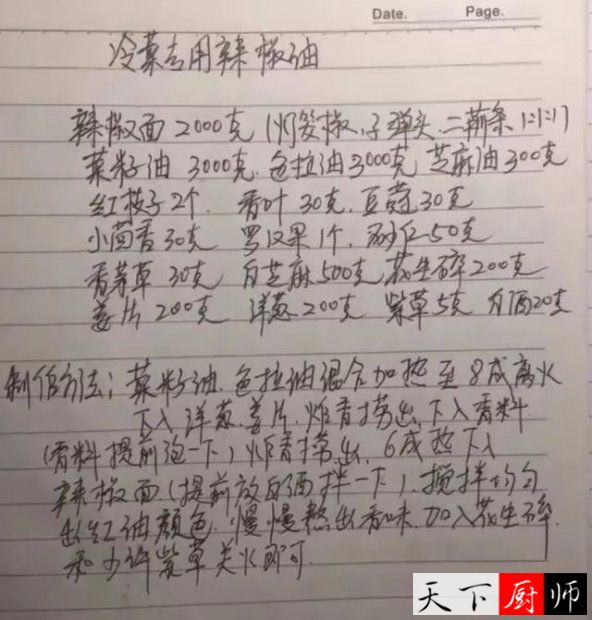 Date. Page.
冷菜专用辣椒油
辣椒面2000克(灯笼椒、子弹头、二荆条1:1:1)
菜籽油3000克.色拉油3000克 芝麻油300克
红枝子2个. 香叶30克.豆蔻30克
小茴香30克 罗汉果1个.砂仁50克
香茅草30克 白芝麻500克 花生碎200克
姜片200克 洋葱200克 紫草5克 白酒20克
制作方法:菜籽油.色拉油混合加热至8成离火
下入洋葱.姜片.炸香捞出.下入香料
(香料提前泡一下)炸香捞出.6成热下入
辣椒面(提前放白酒拌一下).搅拌均匀
出红油颜色.慢慢熬出香味.加入花生碎.
和少许紫草关火即可.
天下厨师